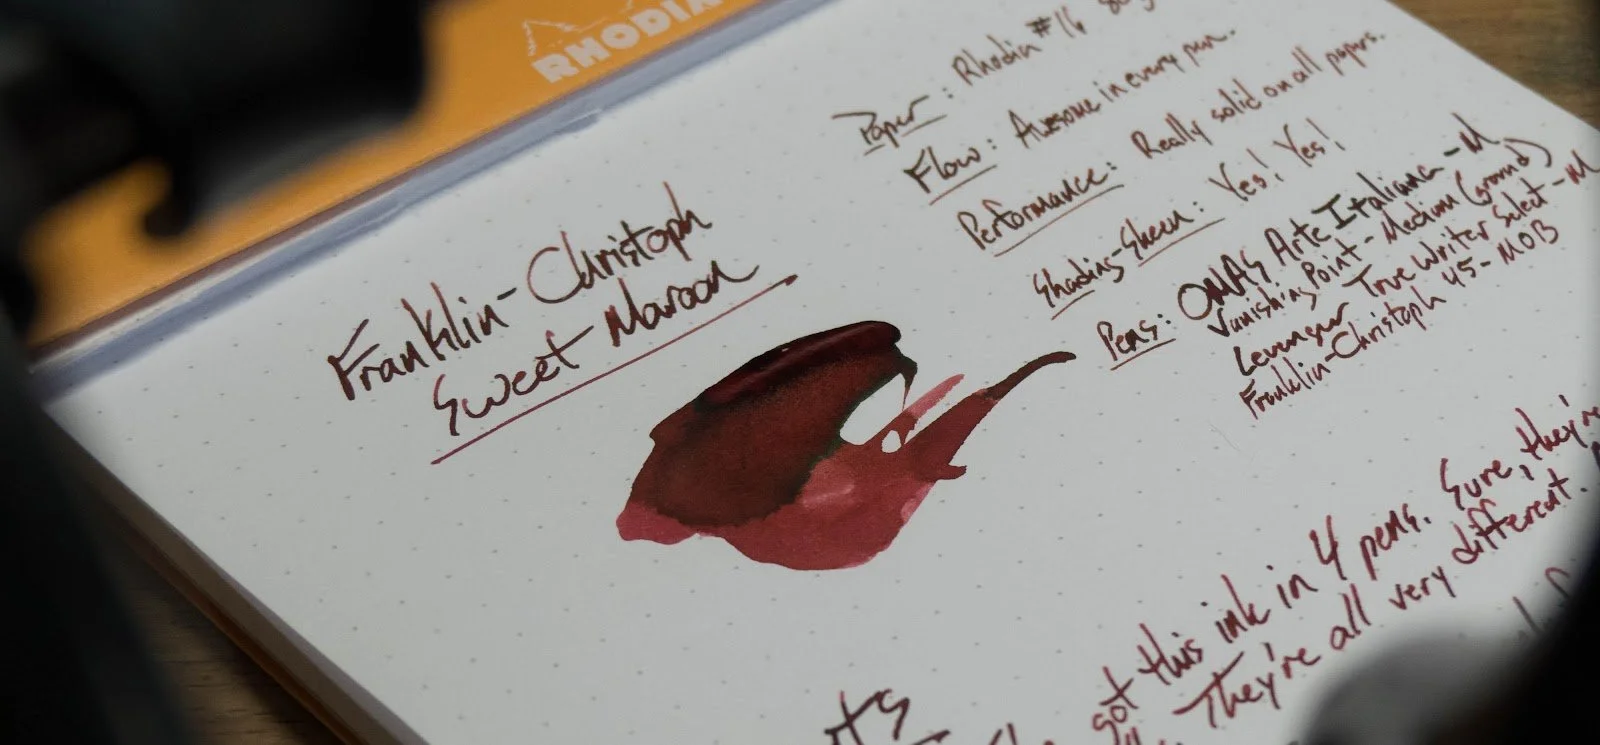 RHODIA
Franklin-Christoph
Sweet Maroon
Paper: Rhodia #16 80g
Flow: Awesome in every pen.
Performance: Really solid on all papers.
Shading-Sheen: Yes! Yes!
Pens: OMAS Arte Italiana - M
Vanishing Point - Medium (ground)
Levenger True Writer Select - M
Franklin-Christoph 45 - MOB
got this ink in 4 pens. Sure, they're
They're all very different.